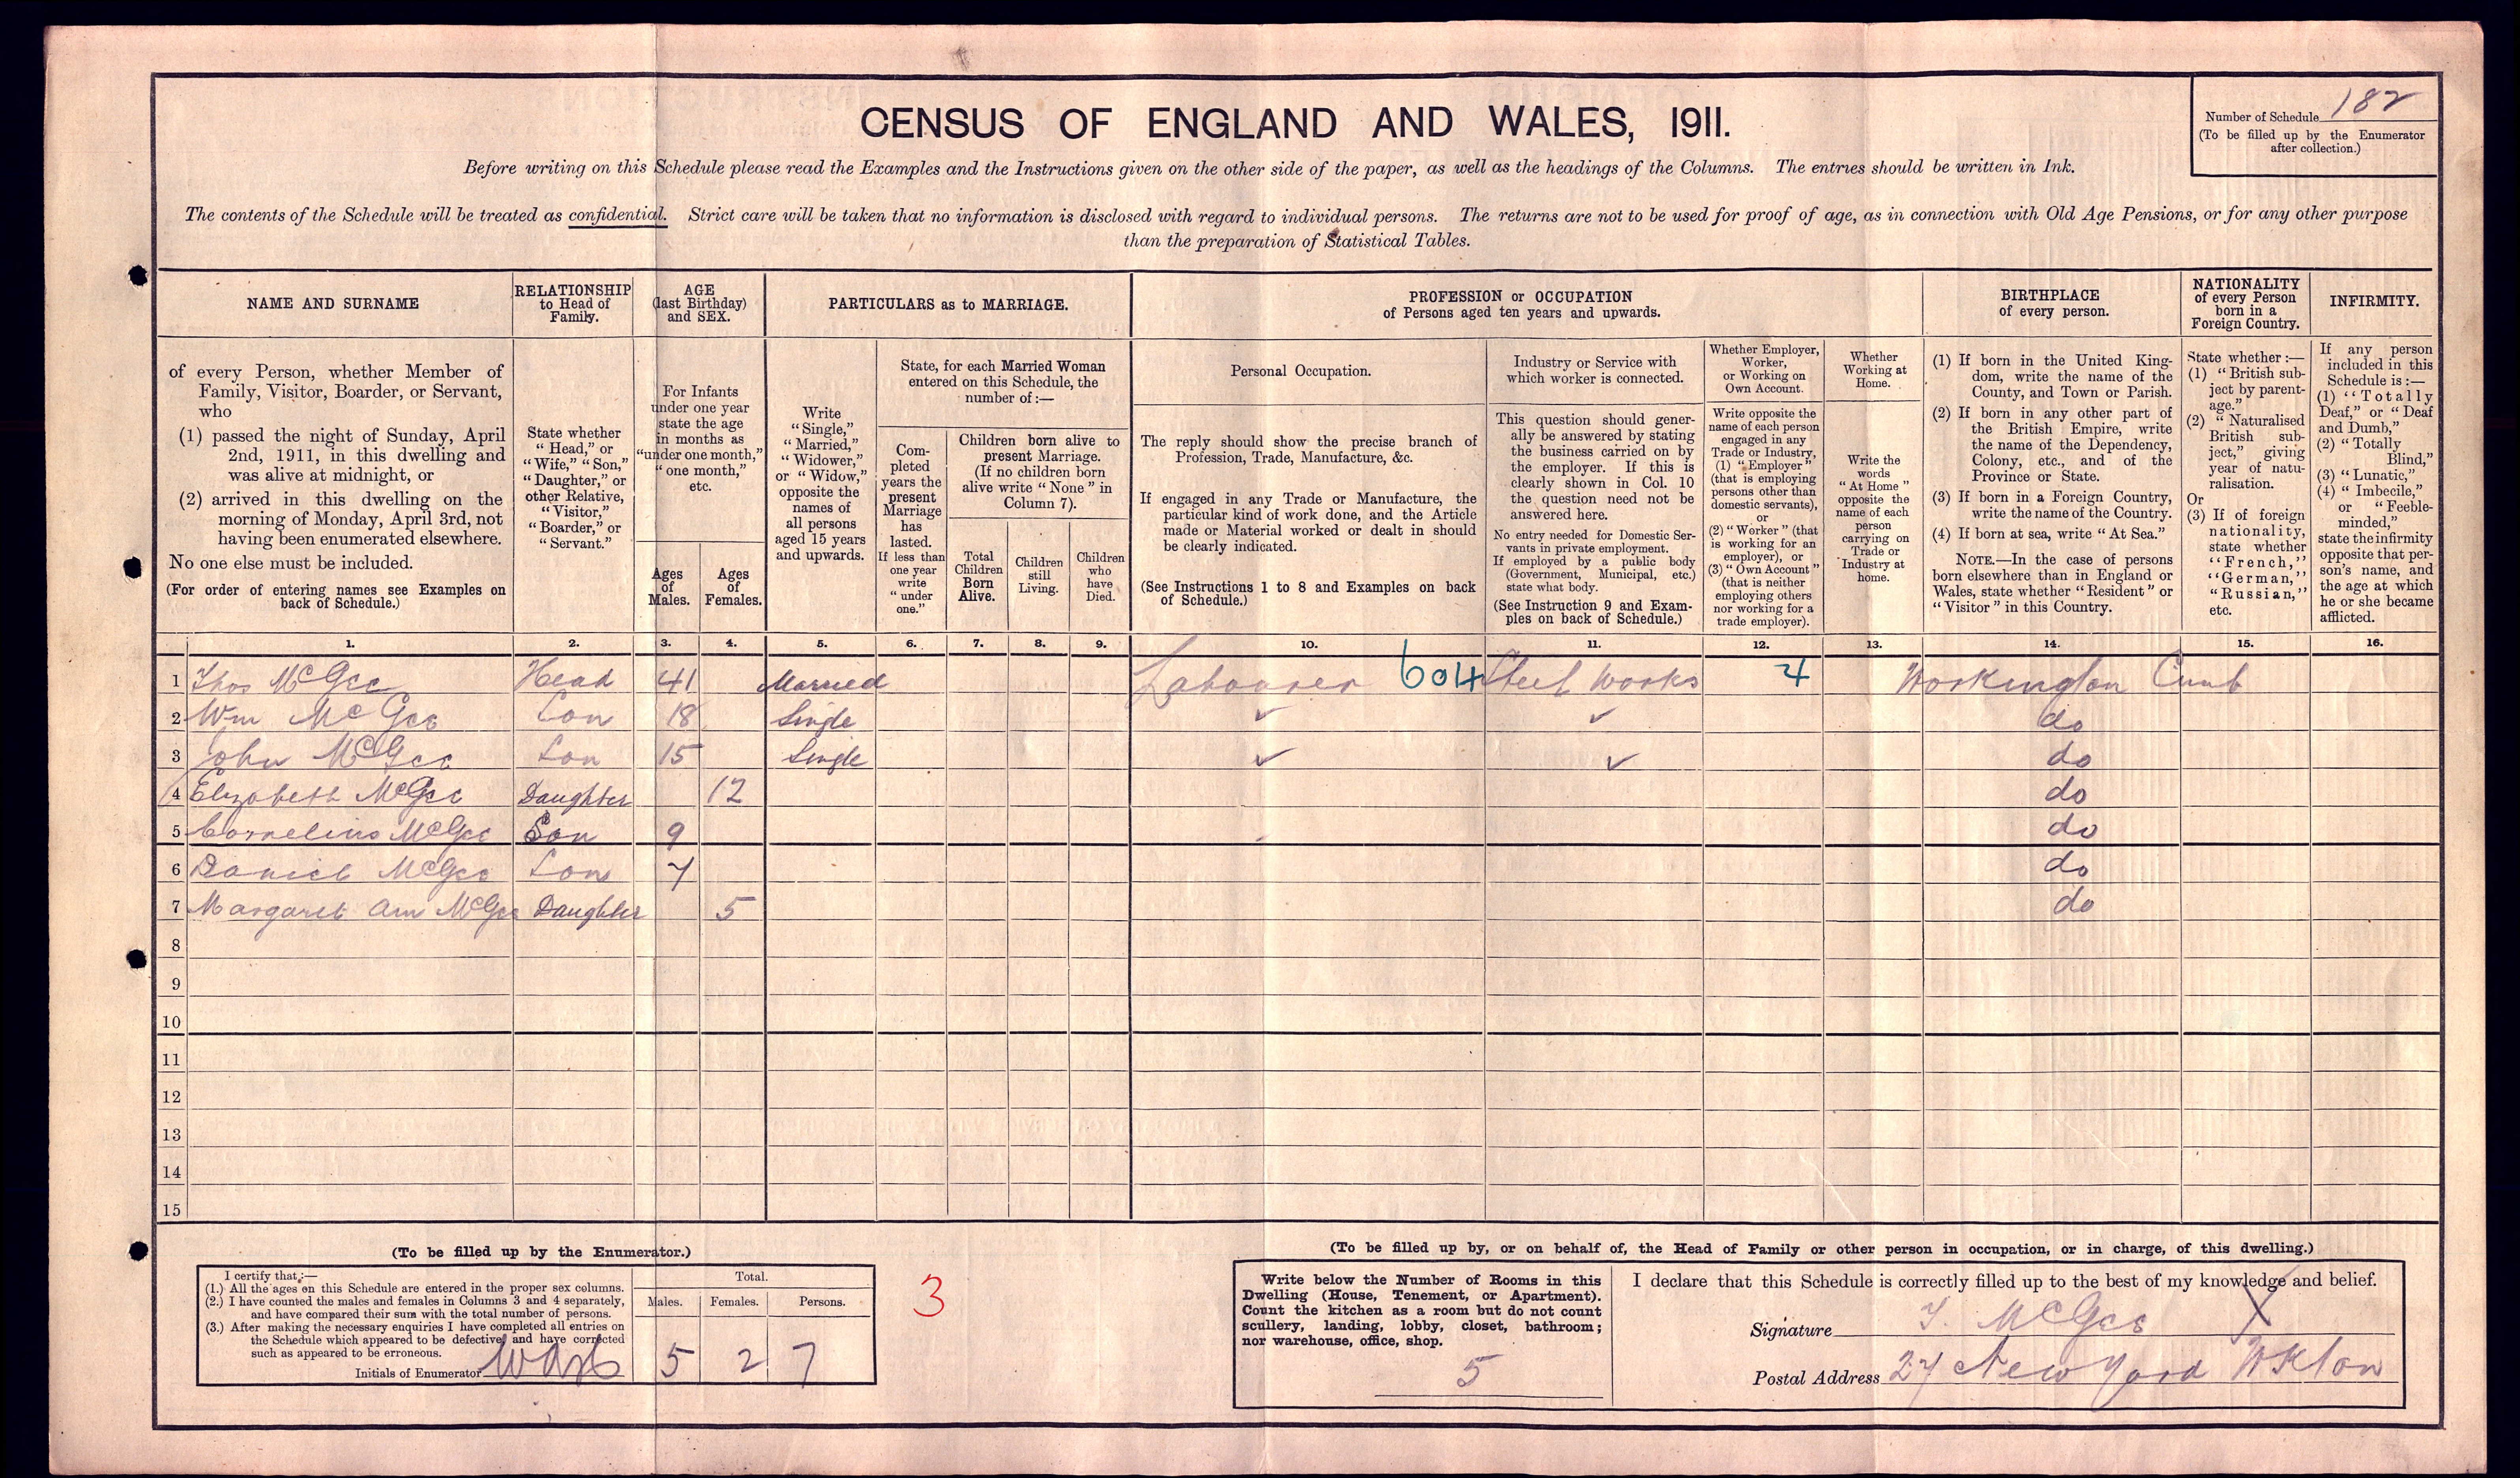 CENSUS OF ENGLAND AND WALES, 1911.
Number of Schedule 182
(To be filled up by the Enumerator
after collection.)
Before writing on this Schedule please read the Examples and the Instructions given on the other side of the paper, as well as the headings of the Columns. The entries should be written in Ink.
The contents of the Schedule will be treated as confidential. Strict care will be taken that no information is disclosed with regard to individual persons. The returns are not to be used for proof of age, as in connection with Old Age Pensions, or for any other purpose
than the preparation of Statistical Tables.
NAME AND SURNAME
of every Person, whether Member of
Family, Visitor, Boarder, or Servant,
who
(1) passed the night of Sunday, April
2nd, 1911, in this dwelling and
was alive at midnight, or
(2) arrived in this dwelling on the
morning of Monday, April 3rd, not
having been enumerated elsewhere.
No one else must be included.
(For order of entering names see Examples on
back of Schedule.)
RELATIONSHIP
to Head of
Family.
State whether
"Head," or
"Wife," "Son,"
"Daughter," or
other Relative,
"Visitor,"
"Boarder," or
"Servant."
AGE
(last Birthday)
and SEX.
For Infants
under one year
state the age
in months as
"under one month,"
"one month,"
etc.
Ages
of
Males.
Ages
of
Females.
PARTICULARS as to MARRIAGE.
Write
"Single,"
"Married,"
"Widower,"
or "Widow,"
opposite the
names of
all persons
aged 15 years
and upwards.
State, for each Married Woman
entered on this Schedule, the
number of :—
Com-
pleted
years the
present
Marriage
has
lasted.
If less than
one year
write
"under
one."
Children born alive to
present Marriage.
(If no children born
alive write "None" in
Column 7).
Total
Children
Born
Alive.
Children
still
Living.
Children
who
have
Died.
PROFESSION or OCCUPATION
of Persons aged ten years and upwards.
Personal Occupation.
The reply should show the precise branch of
Profession, Trade, Manufacture, &c.
If engaged in any Trade or Manufacture, the
particular kind of work done, and the Article
made or Material worked or dealt in should
be clearly indicated.
(See Instructions 1 to 8 and Examples on back
of Schedule.)
Industry or Service with
which worker is connected.
This question should gener-
ally be answered by stating
the business carried on by
the employer. If this is
clearly shown in Col. 10
the question need not be
answered here.
No entry needed for Domestic Ser-
vants in private employment.
If employed by a public body
(Government, Municipal, etc.)
state what body.
(See Instruction 9 and Exam-
ples on back of Schedule.)
Whether Employer,
Worker,
or Working on
Own Account.
Write opposite the
name of each person
engaged in any
Trade or Industry,
(1) "Employer"
(that is employing
persons other than
domestic servants),
or
(2) "Worker" (that
is working for an
employer), or
(3) "Own Account"
(that is neither
employing others
nor working for a
trade employer).
Whether
Working at
Home.
Write the
words
"At Home"
opposite the
name of each
person
carrying on
Trade or
Industry at
home.
BIRTHPLACE
of every person.
(1) If born in the United King-
dom, write the name of the
County, and Town or Parish.
(2) If born in any other part of
the British Empire, write
the name of the Dependency,
Colony, etc., and of the
Province or State.
(3) If born in a Foreign Country,
write the name of the Country.
(4) If born at sea, write "At Sea."
NOTE.—In the case of persons
born elsewhere than in England or
Wales, state whether "Resident" or
"Visitor" in this Country.
NATIONALITY
of every Person
born in a
Foreign Country.
State whether :—
(1) "British sub-
ject by parent-
age."
(2) "Naturalised
British sub-
ject," giving
year of natu-
ralisation.
Or
(3) If of foreign
nationality,
state whether
"French,"
"German,"
"Russian,"
etc.
INFIRMITY.
If any person
included in this
Schedule is :—
(1) "Totally
Deaf," or "Deaf
and Dumb,"
(2) "Totally
Blind,"
(3) "Lunatic,"
(4) "Imbecile,"
or "Feeble-
minded,"
state the infirmity
opposite that per-
son's name, and
the age at which
he or she became
afflicted.
1. 2. 3. 4. 5. 6. 7. 8. 9. 10. 11. 12. 13. 14. 15. 16.
1 Thos McGee Head 41 Married Labourer 604 Steel Works 4 Workington Cumb
2 Wm McGee Son 18 Single do
3 John McGee Son 15 Single do
4 Elizabeth McGee Daughter 12 do
5 Cornelius McGee Son 9 do
6 Daniel McGee Son 7 do
7 Margaret Ann McGee Daughter 5 do
8
9
10
11
12
13
14
15
(To be filled up by the Enumerator.)
I certify that :—
(1.) All the ages on this Schedule are entered in the proper sex columns.
(2.) I have counted the males and females in Columns 3 and 4 separately,
and have compared their sum with the total number of persons.
(3.) After making the necessary enquiries I have completed all entries on
the Schedule which appeared to be defective, and have corrected
such as appeared to be erroneous.
Initials of Enumerator
Total.
Males. Females. Persons.
5 2 7
3
(To be filled up by, or on behalf of, the Head of Family or other person in occupation, or in charge, of this dwelling.)
Write below the Number of Rooms in this
Dwelling (House, Tenement, or Apartment).
Count the kitchen as a room but do not count
scullery, landing, lobby, closet, bathroom;
nor warehouse, office, shop.
5
I declare that this Schedule is correctly filled up to the best of my knowledge and belief.
Signature T. McGee X
Postal Address 27 New Yard Wkton